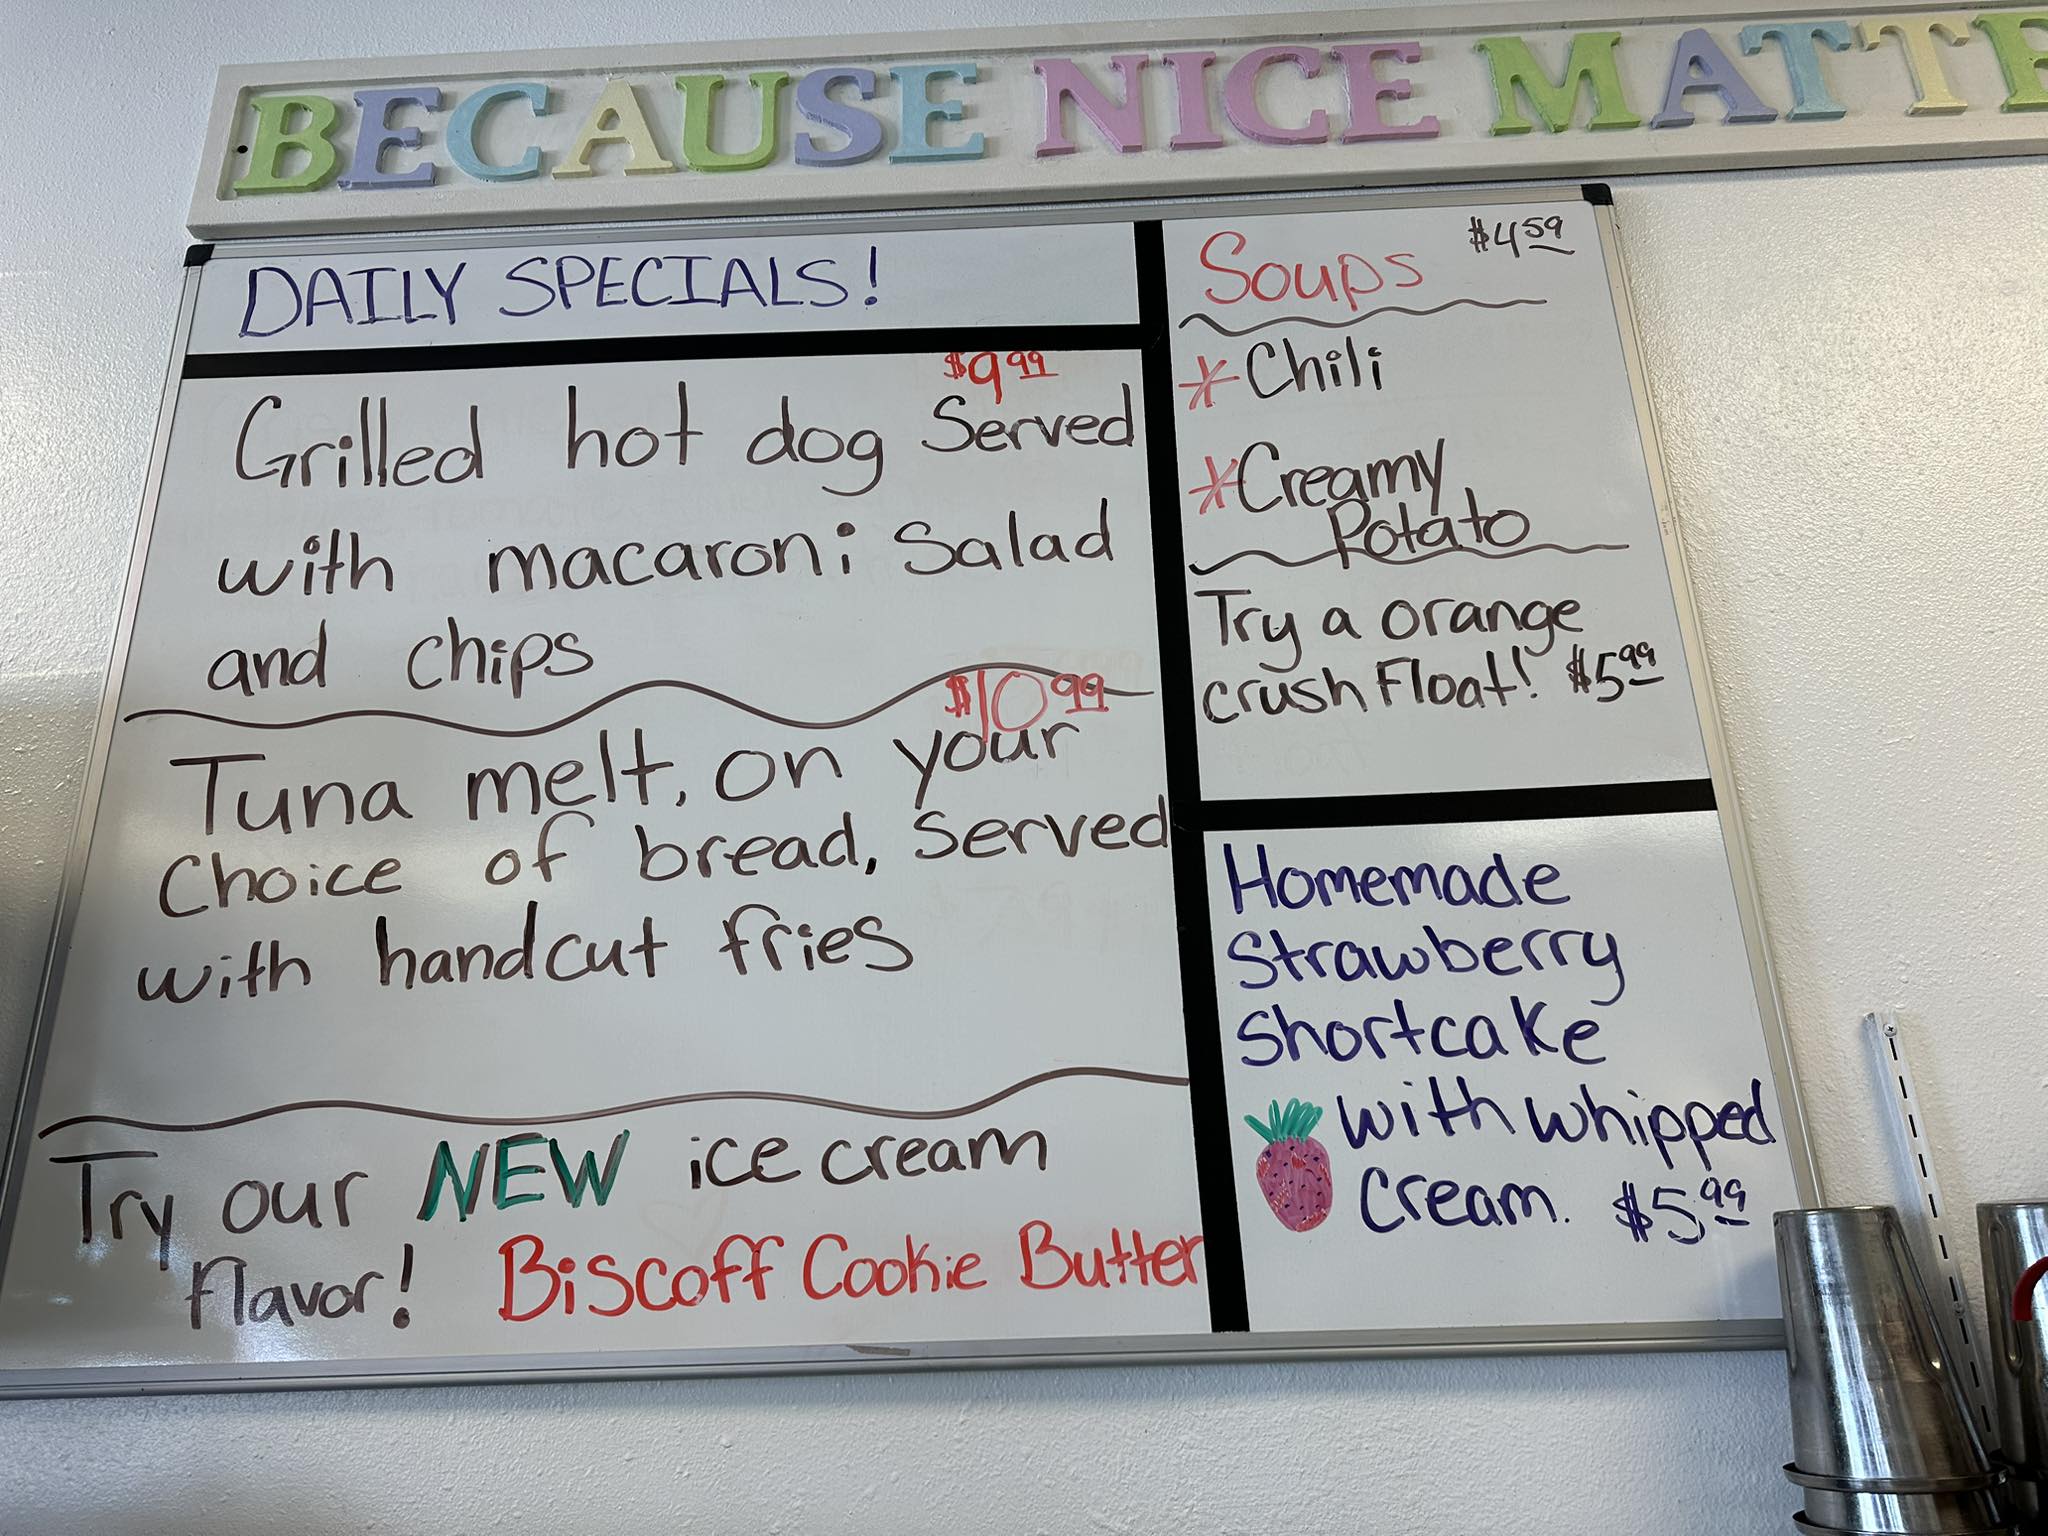 BECAUSE NICE MATTE
DAILY SPECIALS!
$9.99
Grilled hot dog Served
with macaroni Salad
and chips
$10.99
Tuna melt, on your
Choice of bread, Served
with handcut fries
Try our NEW ice cream
flavor! Biscoff Cookie Butter
Soups $4.59
*Chili
*Creamy
Potato
Try a orange
crush Float! $5.99
Homemade
Strawberry
Shortcake
with whipped
Cream. $5.99